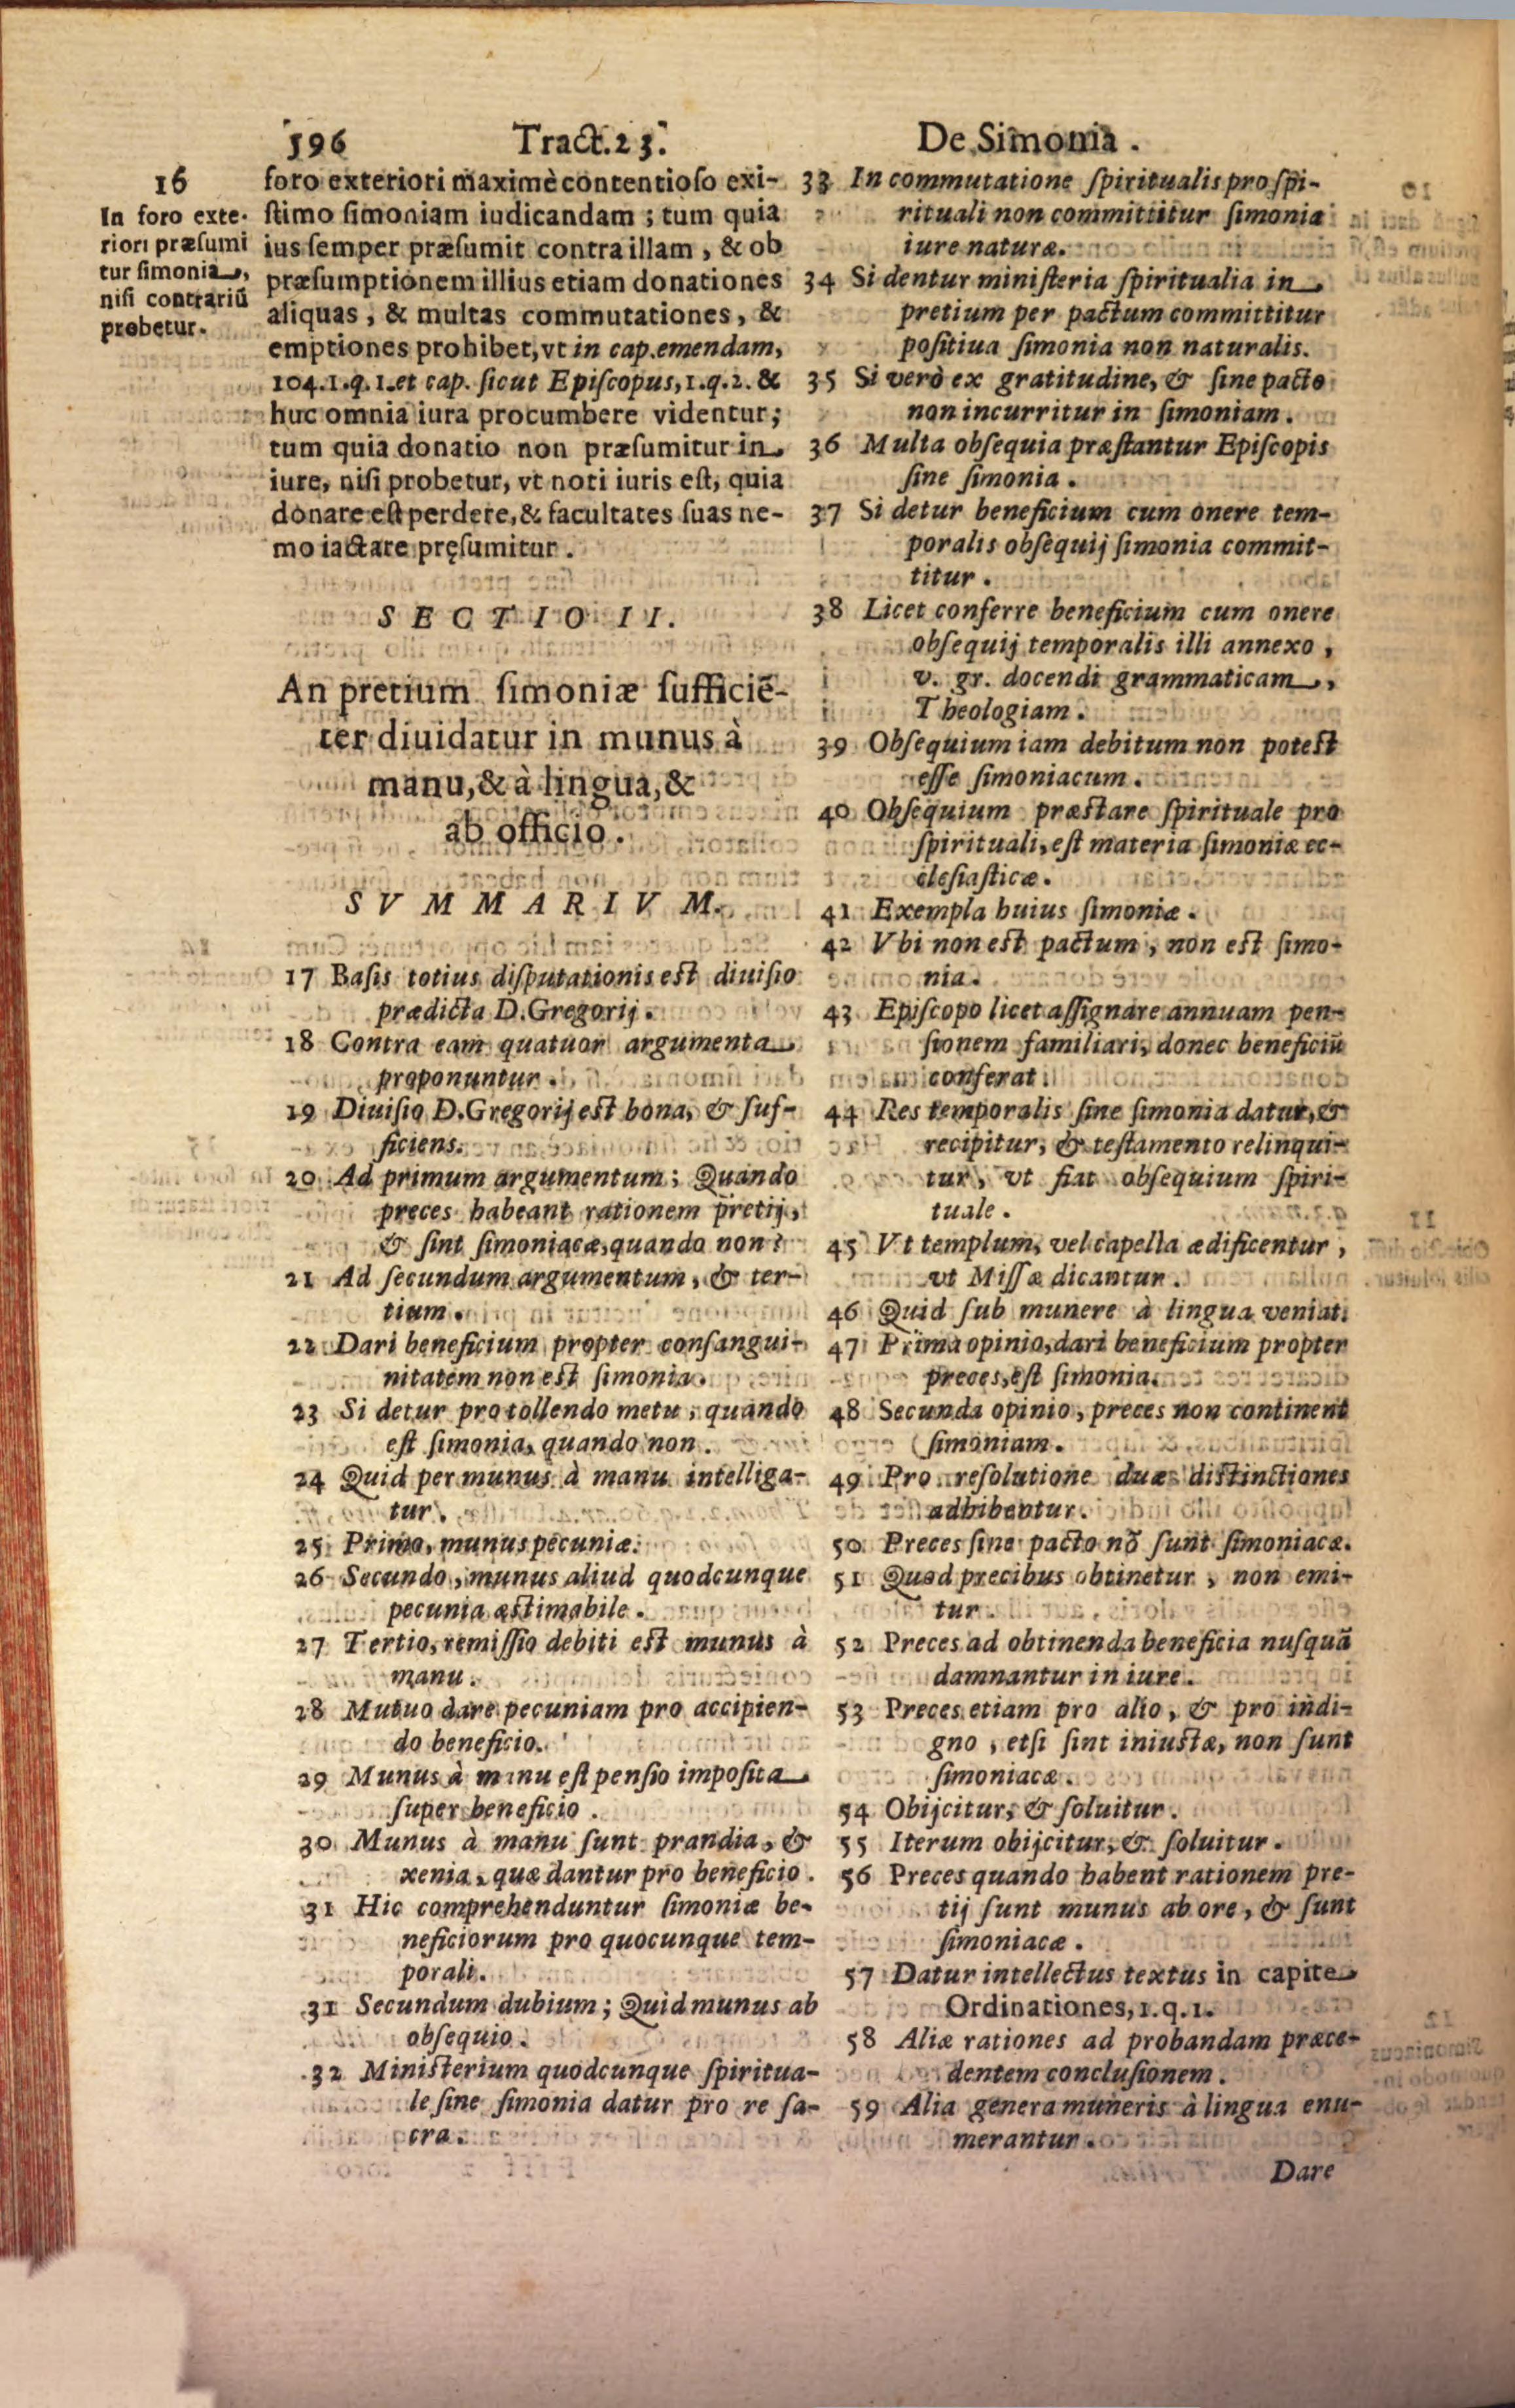 596 Tract.23. De Simonia.
16
In foro exte-
riori præsumi
tur simonia,
nisi contrariū
probetur.
foro exteriori maximè contentioso exi-
stimo simoniam iudicandam; tum quia
ius semper præsumit contra illam, & ob
præsumptionem illius etiam donationes
aliquas, & multas commutationes, &
emptiones prohibet, vt in cap. emendam,
104.1.q.1.et cap. sicut Episcopus, 1.q.2. &
huc omnia iura procumbere videntur;
tum quia donatio non præsumitur in
iure, nisi probetur, vt noti iuris est, quia
donare est perdere, & facultates suas ne-
mo iactare pręsumitur.
SECTIO II.
An pretium simoniæ sufficiē-
ter diuidatur in munus à
manu, & à lingua, &
ab officio.
SVMMARIVM.
17 Basis totius disputationis est diuisio
prædicta D.Gregorij.
18 Contra eam quatuor argumenta
proponuntur.
19 Diuisio D.Gregorij est bona, & suf-
ficiens.
20 Ad primum argumentum; Quando
preces habeant rationem pretij,
& sint simoniacæ, quando non?
21 Ad secundum argumentum, & ter-
tium.
22 Dari beneficium propter consangui-
nitatem non est simonia.
23 Si detur pro tollendo metu, quando
est simonia, quando non.
24 Quid per munus à manu intelliga-
tur.
25 Primo, munus pecuniæ.
26 Secundo, munus aliud quodcunque
pecunia æstimabile.
27 Tertio, remissio debiti est munus à
manu.
28 Mutuo dare pecuniam pro accipien-
do beneficio.
29 Munus à manu est pensio imposita
super beneficio.
30 Munus à manu sunt prandia, &
xenia, quæ dantur pro beneficio.
31 Hic comprehenduntur simoniæ be-
neficiorum pro quocunque tem-
porali.
31 Secundum dubium; Quid munus ab
obsequio.
32 Ministerium quodcunque spiritua-
le sine simonia datur pro re sa-
cra.
33 In commutatione spiritualis pro spi-
rituali non committitur simonia
iure naturæ.
34 Si dentur ministeria spiritualia in
pretium per pactum committitur
positiua simonia non naturalis.
35 Si verò ex gratitudine, & sine pacto
non incurritur in simoniam.
36 Multa obsequia præstantur Episcopis
sine simonia.
37 Si detur beneficium cum onere tem-
poralis obsequij simonia commit-
titur.
38 Licet conferre beneficium cum onere
obsequij temporalis illi annexo,
v. gr. docendi grammaticam,
Theologiam.
39 Obsequium iam debitum non potest
esse simoniacum.
40 Obsequium præstare spirituale pro
spirituali, est materia simoniæ ec-
clesiasticæ.
41 Exempla huius simoniæ.
42 Vbi non est pactum, non est simo-
nia.
43 Episcopo licet assignare annuam pen-
sionem familiari, donec beneficiū
conferat.
44 Res temporalis sine simonia datur, &
recipitur, & testamento relinqui-
tur, vt fiat obsequium spiri-
tuale.
45 Vt templum, vel capella ædificentur,
vt Missæ dicantur.
46 Quid sub munere à lingua veniat.
47 Prima opinio, dari beneficium propter
preces, est simonia.
48 Secunda opinio, preces non continent
simoniam.
49 Pro resolutione duæ distinctiones
adhibentur.
50 Preces sine pacto nō sunt simoniacæ.
51 Quod precibus obtinetur, non emi-
tur.
52 Preces ad obtinenda beneficia nusquā
damnantur in iure.
53 Preces etiam pro alio, & pro indi-
gno, etsi sint iniustæ, non sunt
simoniacæ.
54 Obijcitur, & soluitur.
55 Iterum obijcitur, & soluitur.
56 Preces quando habent rationem pre-
tij sunt munus ab ore, & sunt
simoniacæ.
57 Datur intellectus textus in capite
Ordinationes, 1.q.1.
58 Aliæ rationes ad probandam præce-
dentem conclusionem.
59 Alia genera muneris à lingua enu-
merantur.
Dare